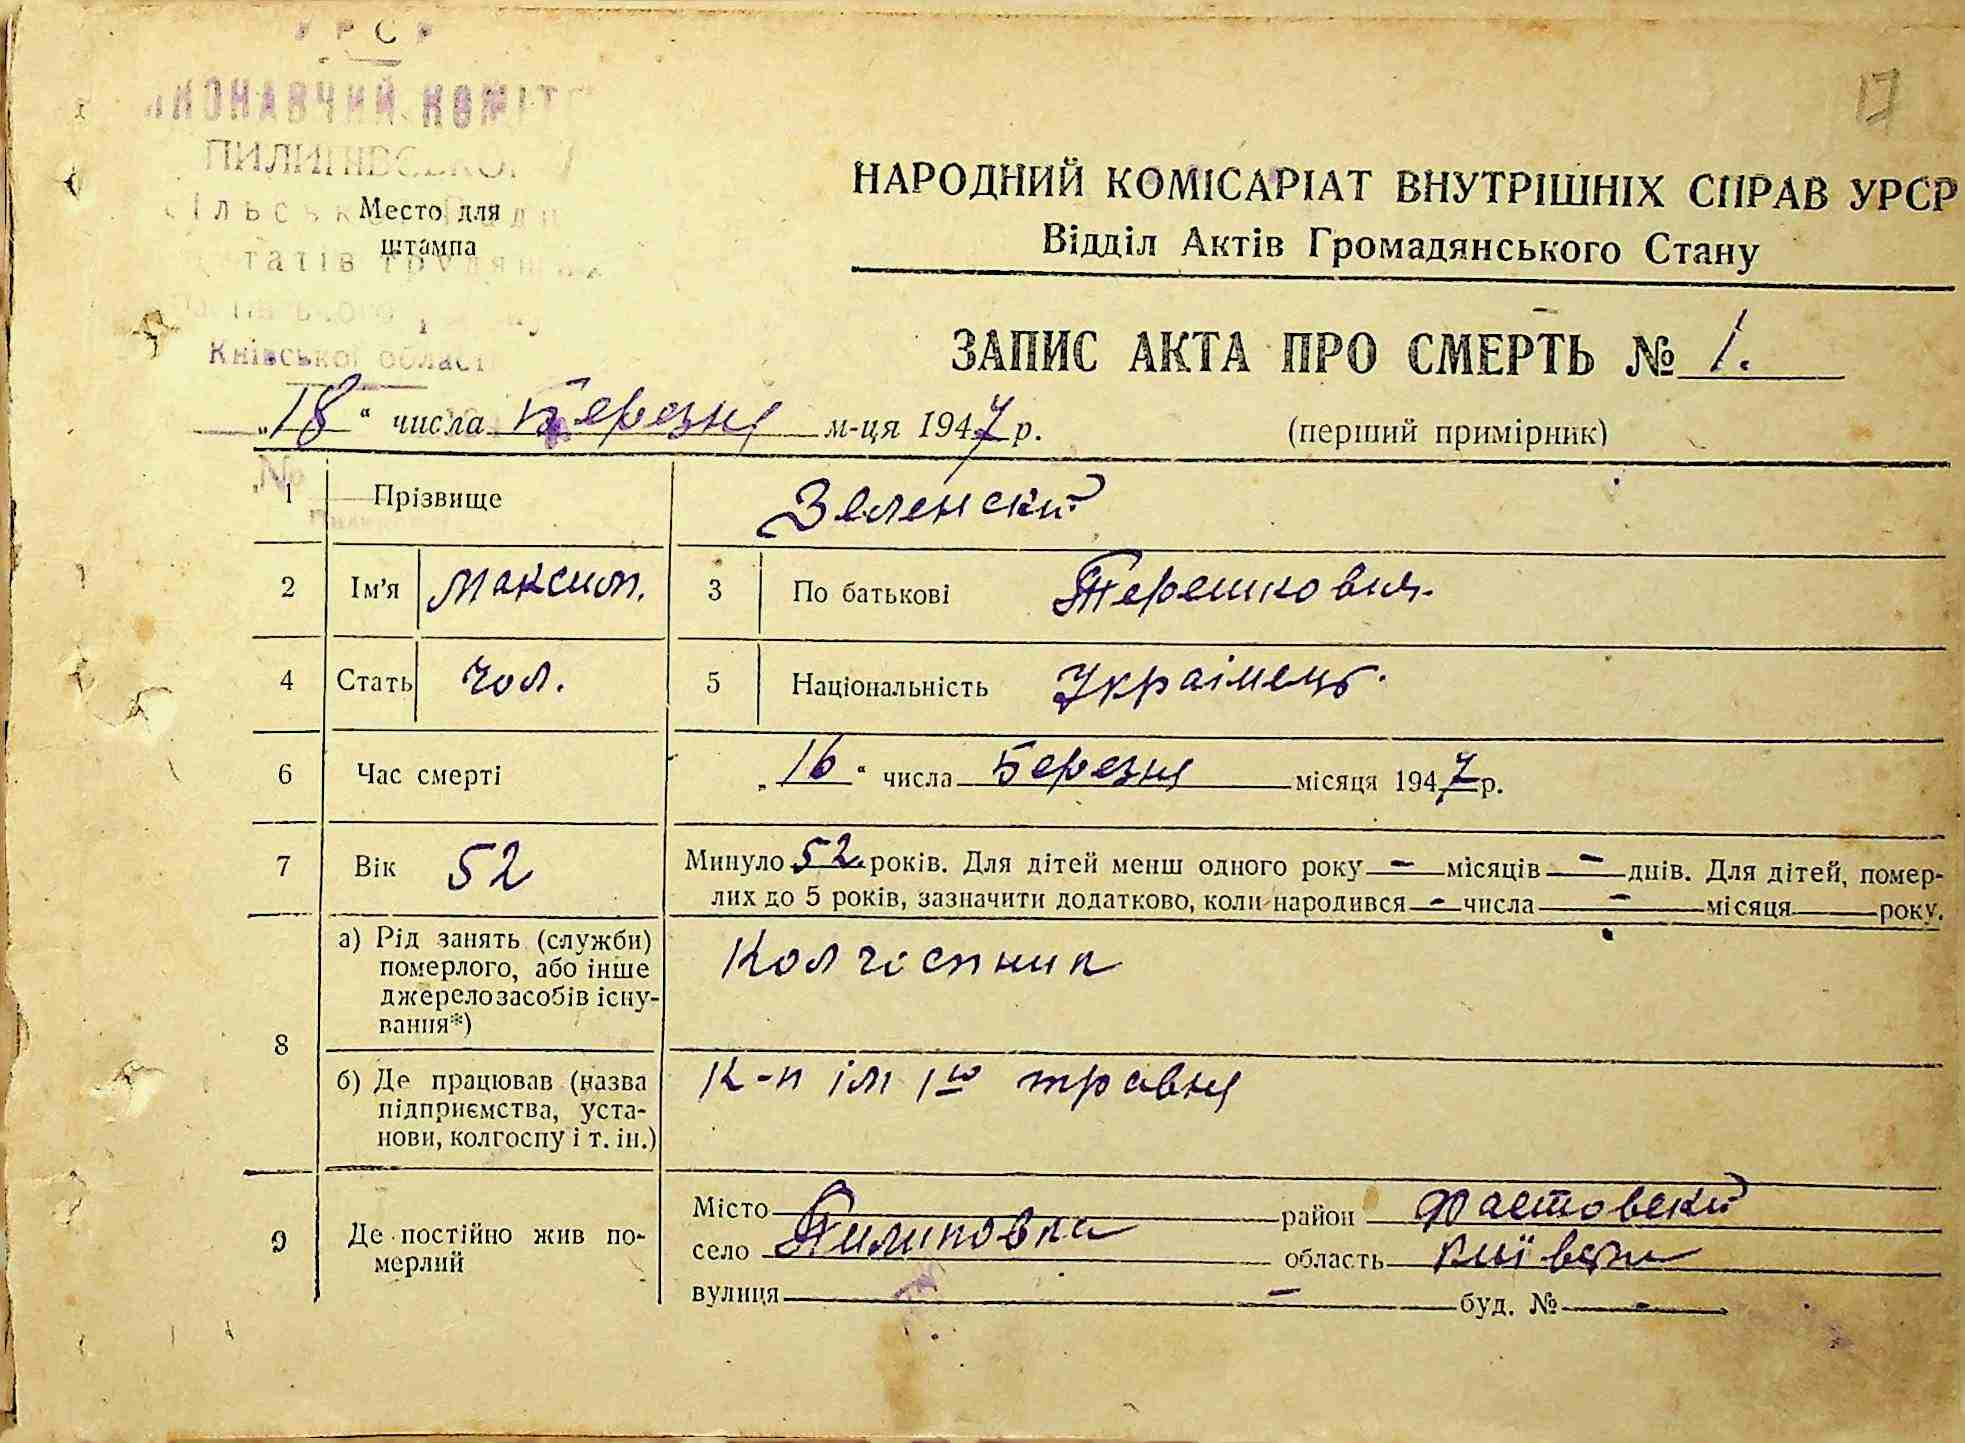 УРСР
17
ПИЛИПІВСЬКОЇ
Место для
штампа
Київської області
НАРОДНИЙ КОМІСАРІАТ ВНУТРІШНІХ СПРАВ УРСР
Відділ Актів Громадянського Стану
ЗАПИС АКТА ПРО СМЕРТЬ № 1.
„18“ числа Березня м-ця 1947 р.
(перший примірник)
1 Прізвище Зеленский
2 Ім'я Максим. 3 По батькові Терешкович.
4 Стать Чол. 5 Національність Українець.
6 Час смерті „16“ числа Березня місяця 1947 р.
7 Вік 52 Минуло 52 років. Для дітей менш одного року - місяців - днів. Для дітей, помер-
лих до 5 років, зазначити додатково, коли народився - числа - місяця року.
8 а) Рід занять (служби)
померлого, або інше
джерело засобів існу-
вання*)
Колгоспник
б) Де працював (назва
підприємства, уста-
нови, колгоспу і т. ін.)
К-п ім 1го травня
9 Де постійно жив по-
мерлий
Місто район Фастовский
село Пилиповка область Київськ
вулиця - буд. № -